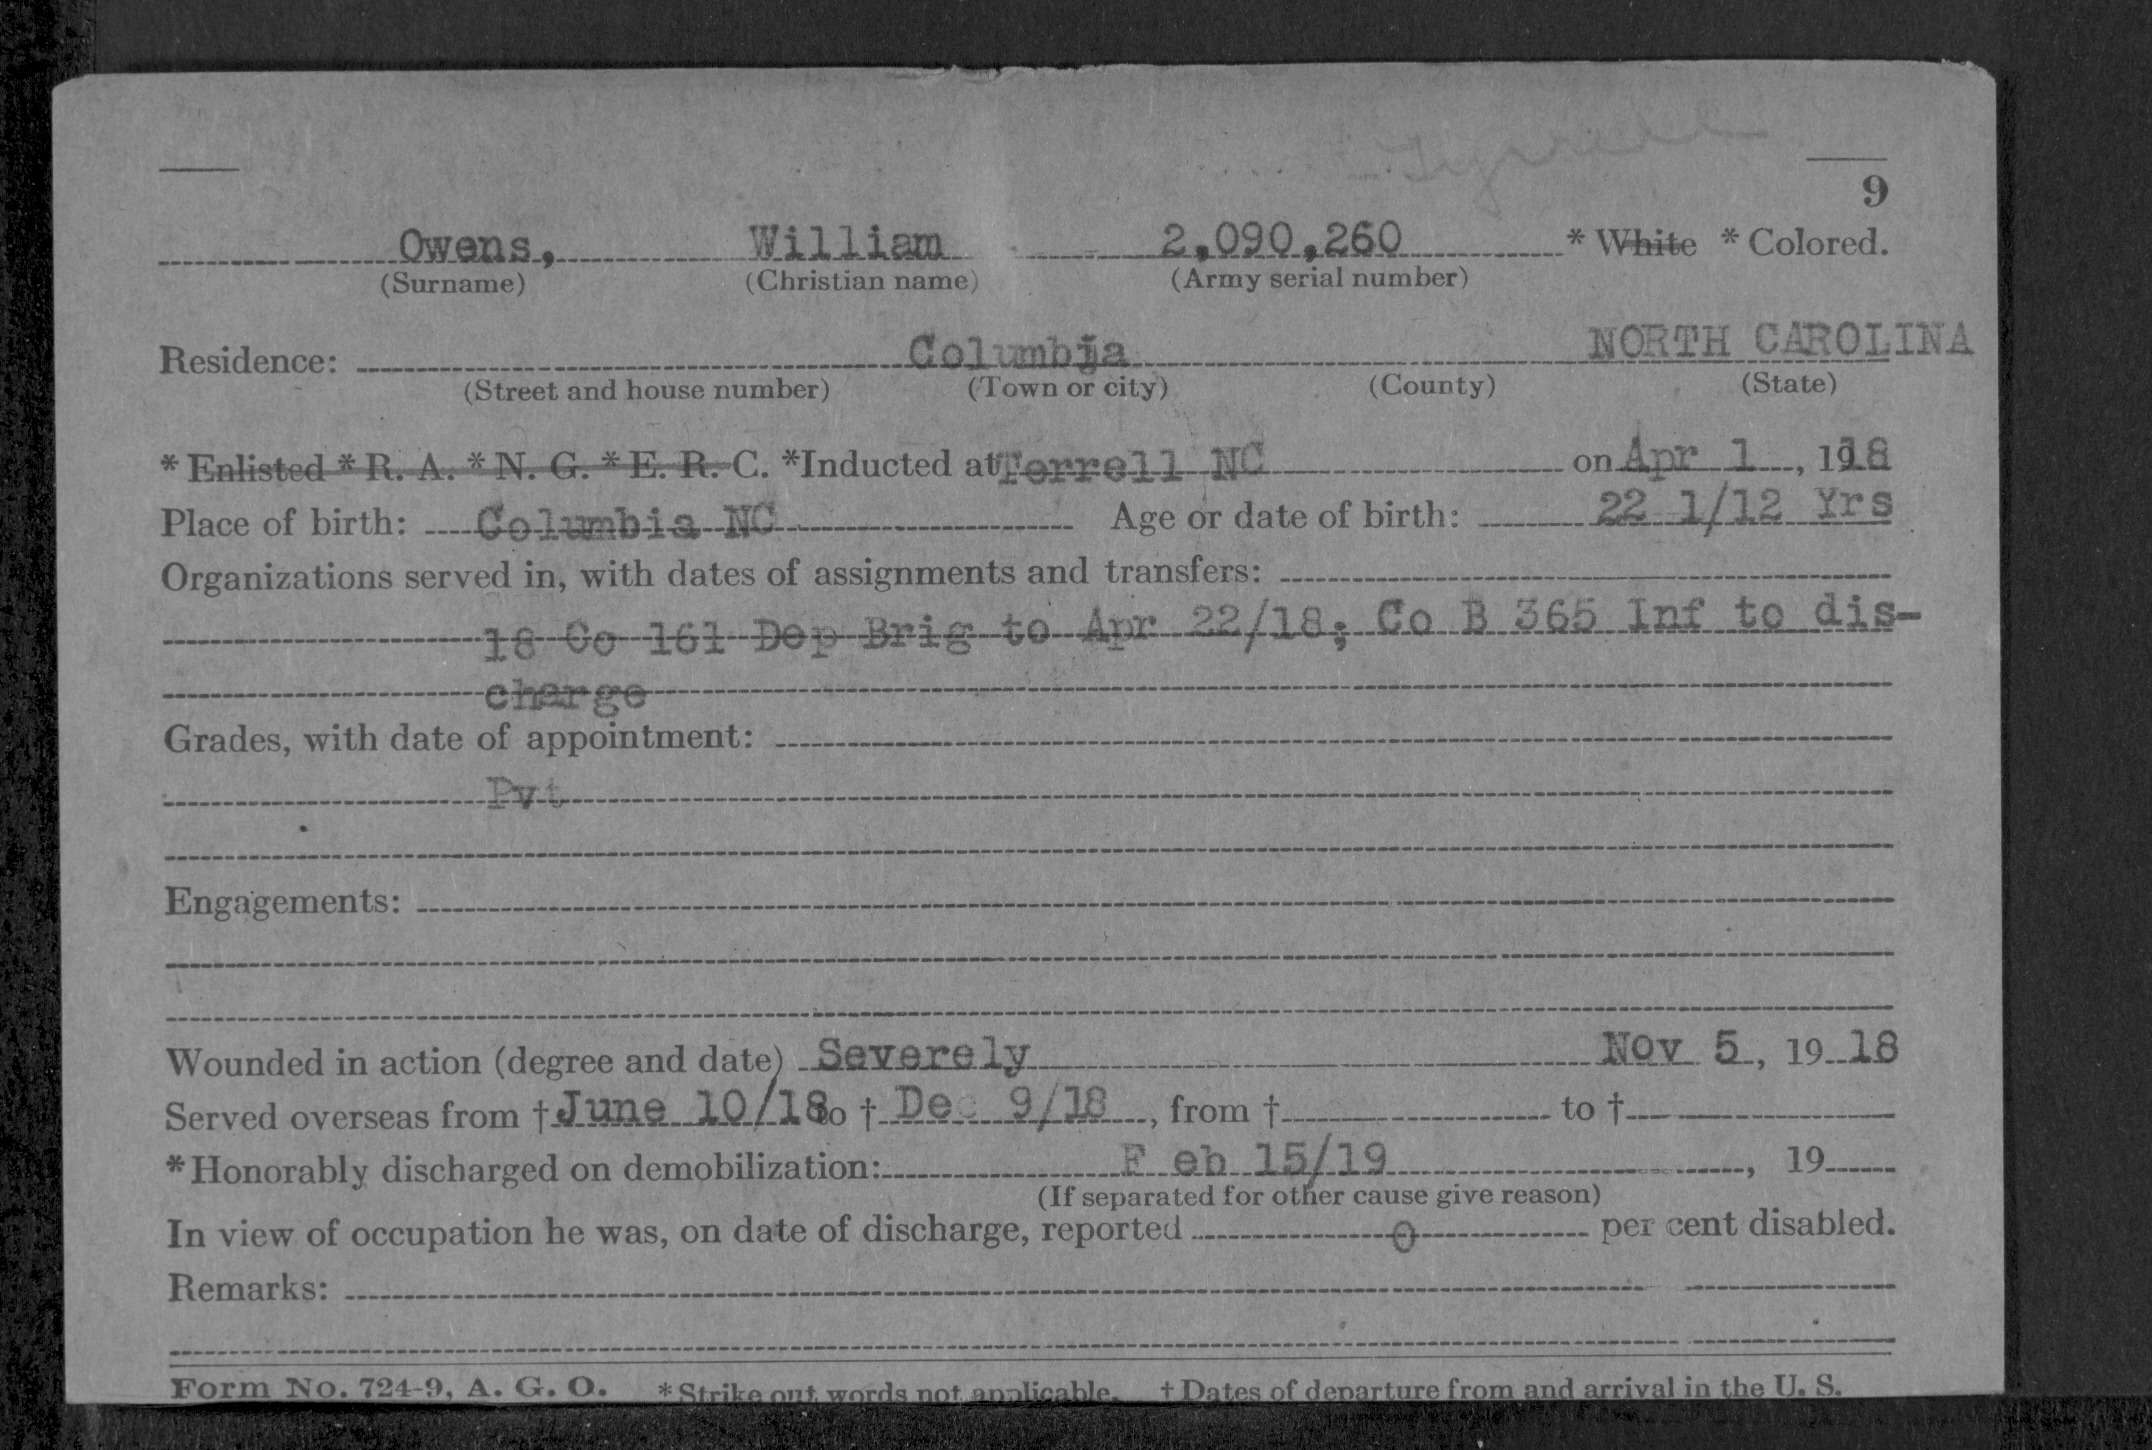 Tyrrell
9
Owens, William 2,090,260 * White * Colored.
(Surname) (Christian name) (Army serial number)
Residence: Columbia NORTH CAROLINA
(Street and house number) (Town or city) (County) (State)
* Enlisted * R. A. * N. G. * E. R. C. *Inducted at Terrell NC on Apr 1, 1918
Place of birth: Columbia NC Age or date of birth: 22 1/12 Yrs
Organizations served in, with dates of assignments and transfers:
18 Co 161 Dep Brig to Apr 22/18; Co B 365 Inf to dis-
charge
Grades, with date of appointment:
Pvt
Engagements:
Wounded in action (degree and date) Severely Nov 5, 19 18
Served overseas from † June 10/18 to † Dec 9/18, from † to †
* Honorably discharged on demobilization: F eb 15/19, 19
(If separated for other cause give reason)
In view of occupation he was, on date of discharge, reported 0 per cent disabled.
Remarks:
Form No. 724-9, A. G. O. * Strike out words not applicable. † Dates of departure from and arrival in the U. S.